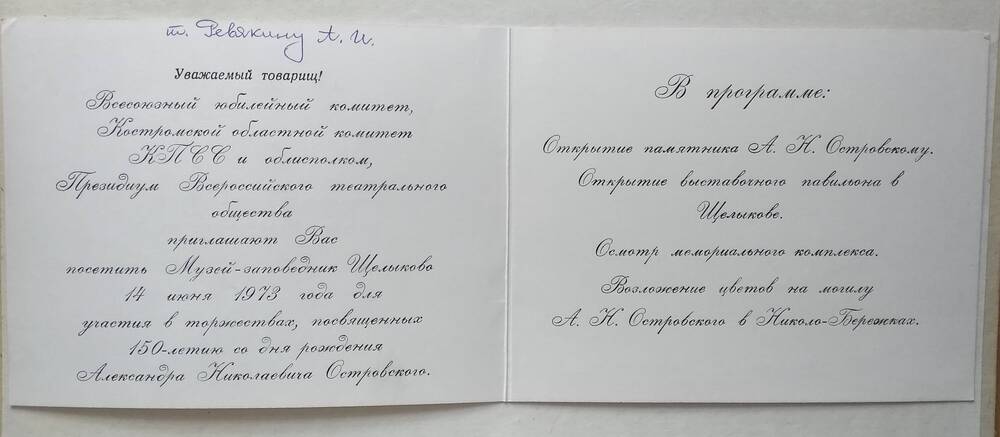 т. Ревякину А. И.
Уважаемый товарищ!
Всесоюзный юбилейный комитет,
Костромской областной комитет
КПСС и облисполком,
Президиум Всероссийского театрального
общества
приглашают Вас
посетить Музей-заповедник Щелыково
14 июня 1973 года для
участия в торжествах, посвященных
150-летию со дня рождения
Александра Николаевича Островского.
В программе:
Открытие памятника А. Н. Островскому.
Открытие выставочного павильона в
Щелыкове.
Осмотр мемориального комплекса.
Возложение цветов на могилу
А. Н. Островского в Николо-Бережках.